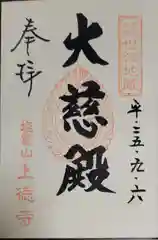 平・二五・九・六
大慈殿
奉拝
塩竈山上徳寺